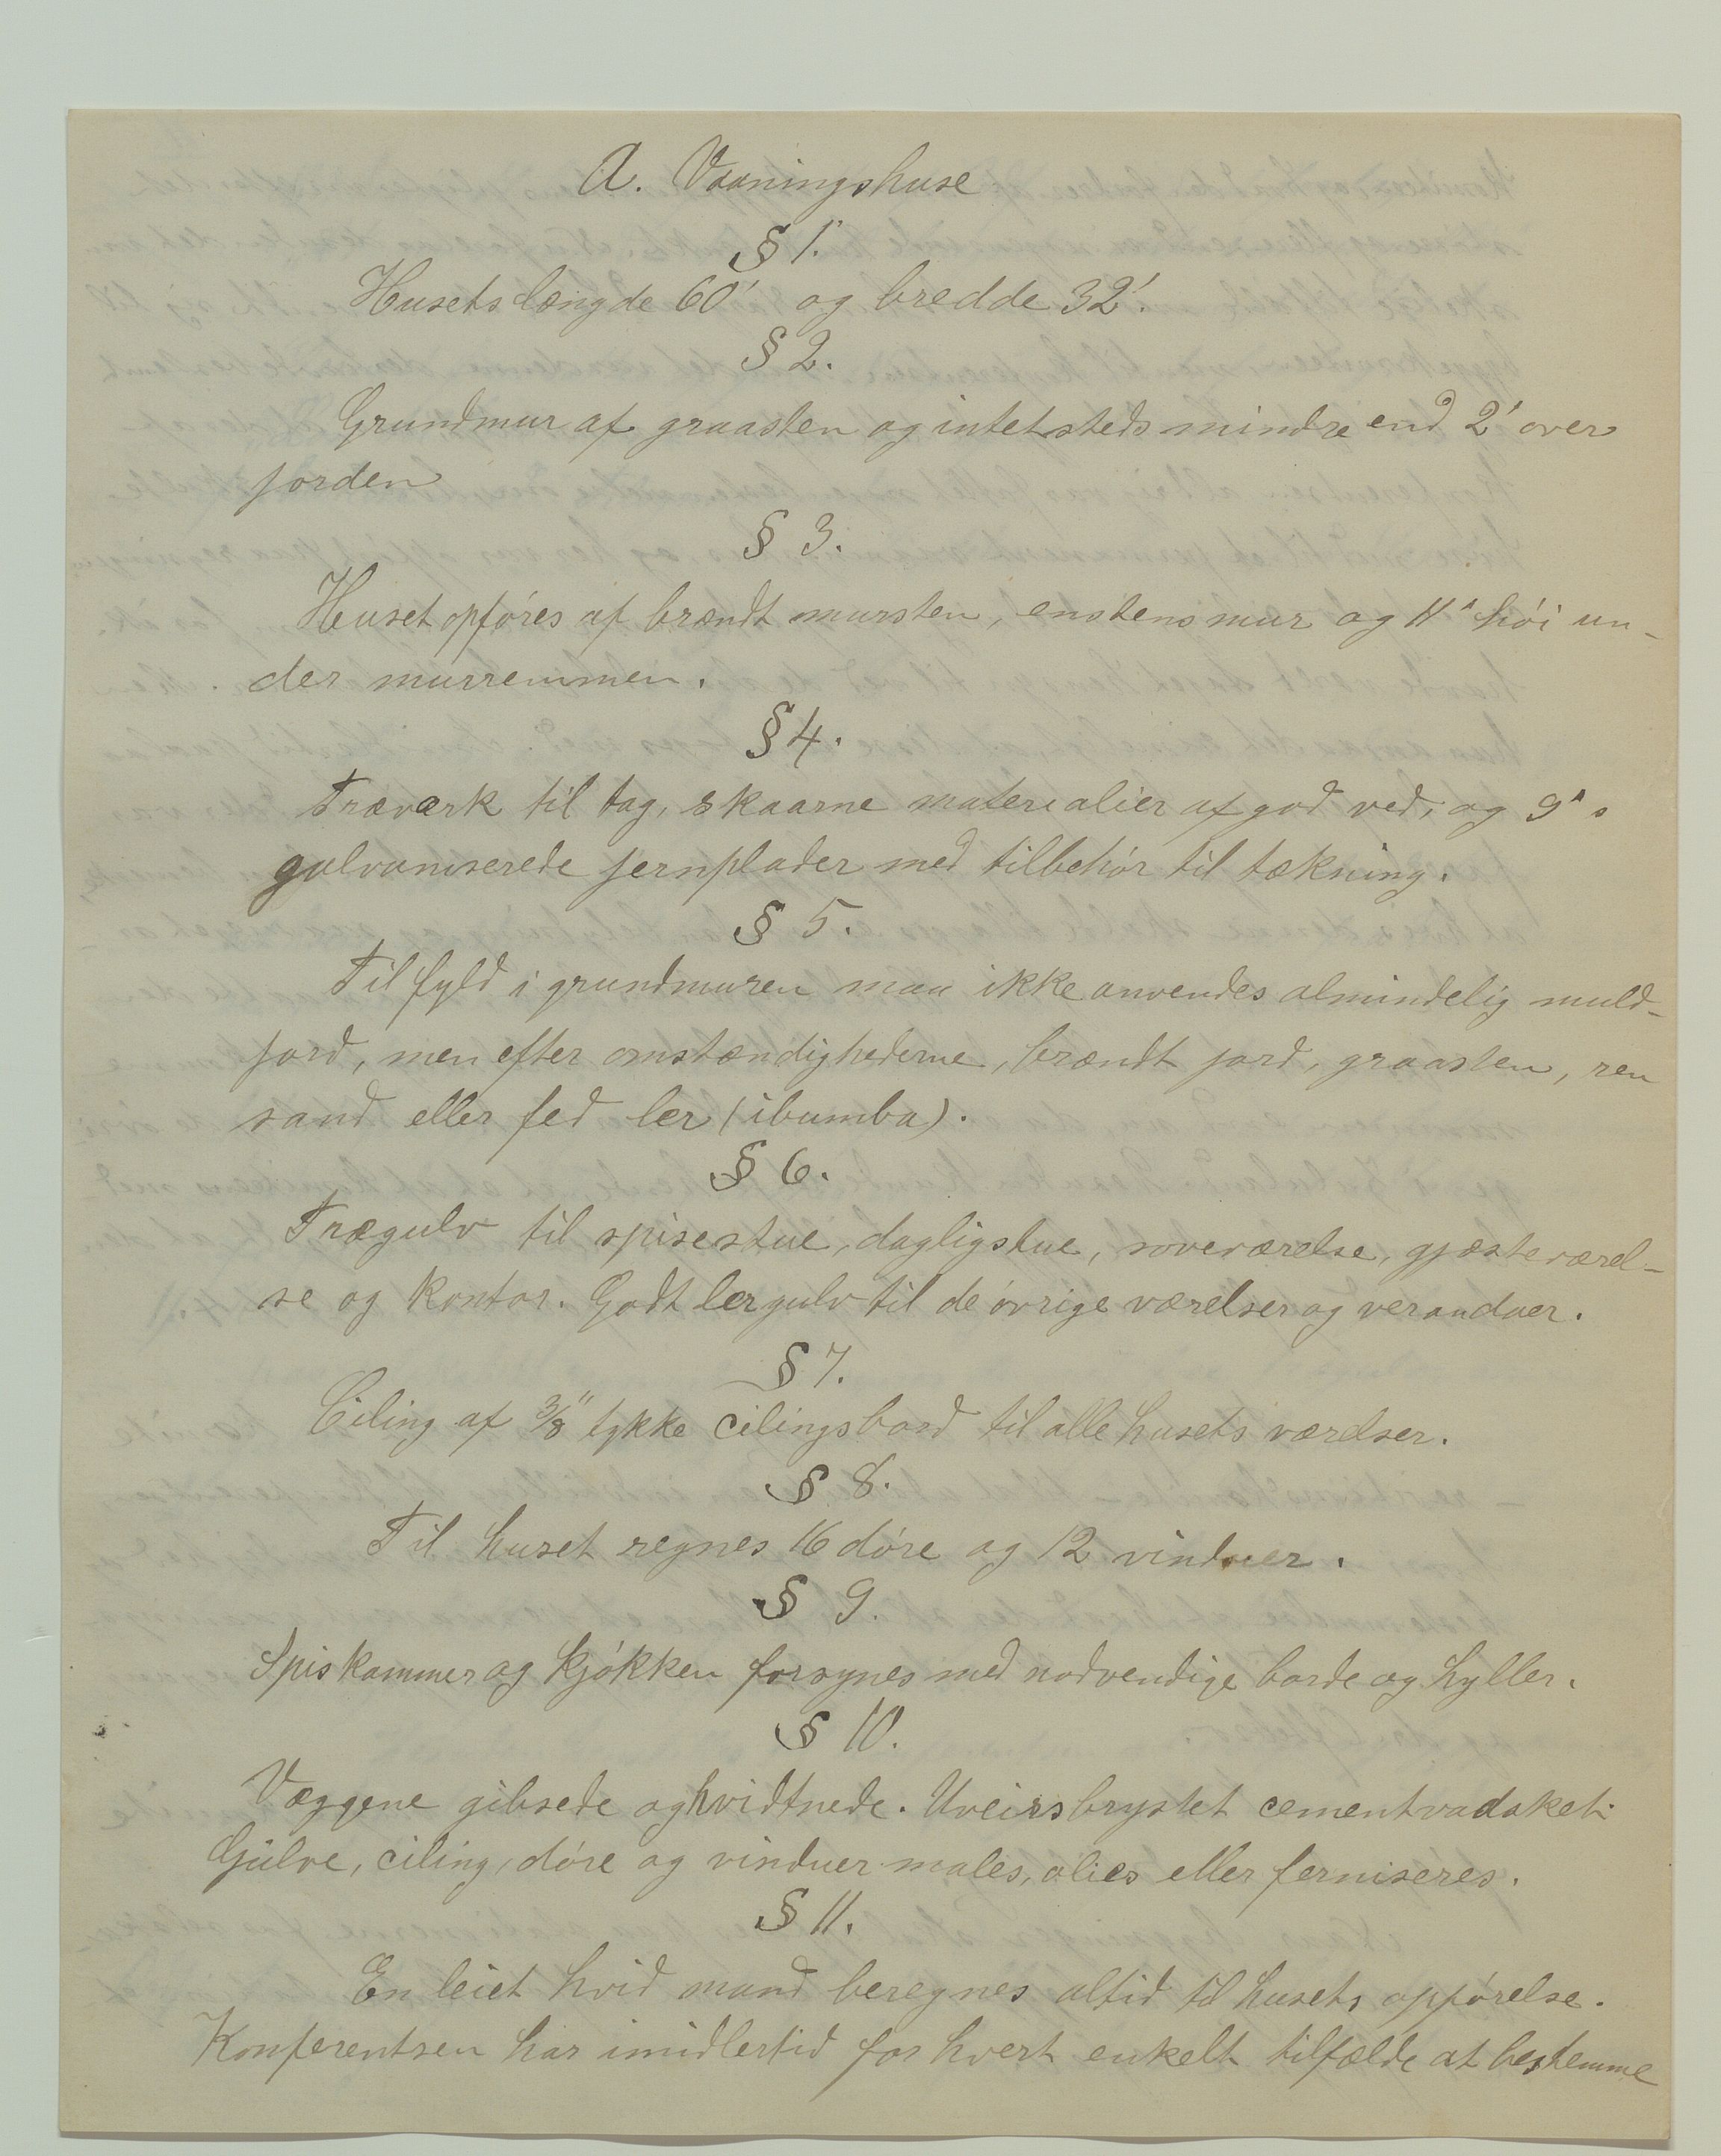 A. Vaaningshuse
§ 1.
Husets længde 60' og bredde 32'.
§ 2.
Grundmur af graasten og intetsteds mindre end 2' over
jorden
§ 3.
Huset opføres af brændt mursten, enstens mur og 11' høi un-
der murremmen.
§ 4.
Træværk til tag, skaarne materialier af god ved, og 9's
galvaniserede jernplader med tilbehør til tækning.
§ 5.
Til fyld i grundmuren maa ikke anvendes almindelig muld-
jord, men efter omstændighederne, brændt jord, graasten, ren
sand eller fed ler (ibumba).
§ 6.
Trægulv til spisestue, dagligstue, soveværelse, gjæsteværel-
se og kontor. Godt lergulv til de øvrige værelser og verandaer.
§ 7.
Ciling af 3/8" tykke cilingsbord til alle husets værelser.
§ 8.
Til huset regnes 16 døre og 12 vinduer.
§ 9.
Spiskammer og kjøkken forsynes med nødvendige borde og hyller.
§ 10.
Væggene gibsede og hvidtnede. Uveirsbrystet cementvadsket.
Gulve, ciling, døre og vinduer males, olies eller ferniseres.
§ 11.
En leiet hvid mand beregnes altid til husets opførelse.
Konferentsen har imidlertid for hvert enkelt tilfælde at bestemme